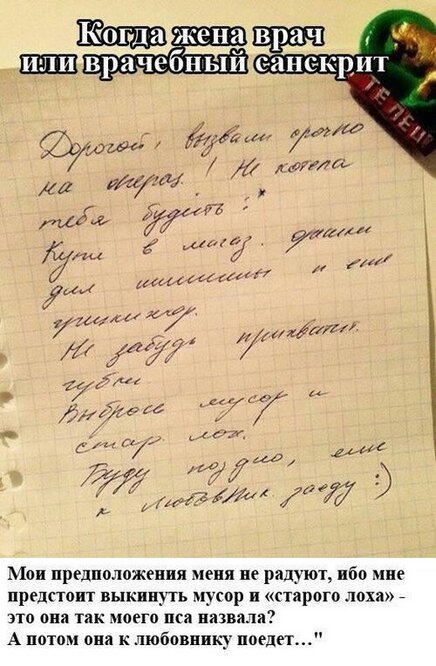 Когда жена врач
или врачебный санскрит
ТЕЛЕЦ
Дорогой, вызвали срочно
на операц. ! Не хотела
тебя будить :*
Купи в магаз.
для и еще
Не забудь прихватит.
губки
Выброси мусор и
стар. лох.
Буду поздно, еще
к любовник. заеду :)
Мои предположения меня не радуют, ибо мне
предстоит выкинуть мусор и «старого лоха» -
это она так моего пса назвала?
А потом она к любовнику поедет…"